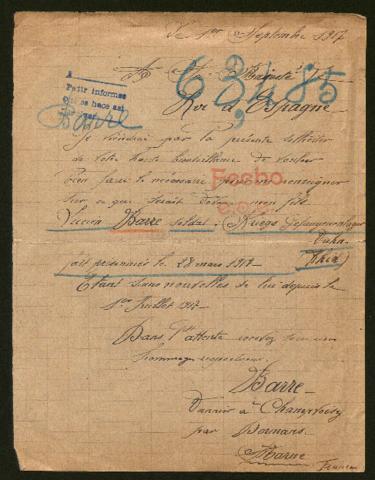 Le 1er Septembre 1917
A
Pedir informes
que se hace así
Barre
63,485
A S. M. Majesté le
Roi d'Espagne
Je viendrai par la présente solliciter
de votre haute bienveillance de vouloir
bien faire le nécessaire pour me renseigner
sur ce que serait devenu mon fils
Fecho
Lucien Barre soldat. Kriegsgefangenenlager
fait prisonnier le 28 mars 1917
Etant sans nouvelles de lui depuis le
1er Juillet 1917
Dans l'attente recevez Sire mes
hommages respectueux.
Barre
Vannier à Champvoisy
par Dormans
Marne
France